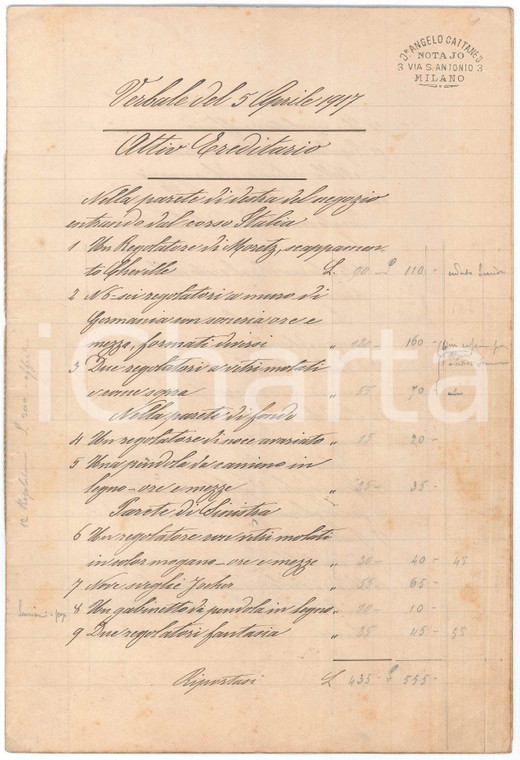 Dr ANGELO CATTANEO
NOTAJO
3 VIA S. ANTONIO 3
MILANO
Verbale del 5 Aprile 1917
Attivo Ereditario
Nella parete di destra del negozio
entrando dal corso Italia
1 Un Regolatore di Moretz, scappamen-
to Cheville £. 90 - £ 110 -
2 N° 6 sei regolatori a muro di
Germania con soneria ore e
mezze, formati diversi „ 120 160 -
3 Due regolatori a vetri molati
e rame sopra „ 55 70 -
Nella parete di fondo
4 Un regolatore di noce avariato „ 15 20 -
5 Una pendola da camino in
legno - ore e mezze „ 25 - 35 -
Parete di Sinistra
6 Un regolatore con vetri molati
in color mogano - ore e mezze „ 30 - 40 - 45
7 Nove sveglie Joker „ 55 - 65 -
8 Un gabinetto da pendola in legno „ 10 -
9 Due regolatori fantasia „ 35 45 - 55
Riportasi £ 435 - £ 555 -
iCharta